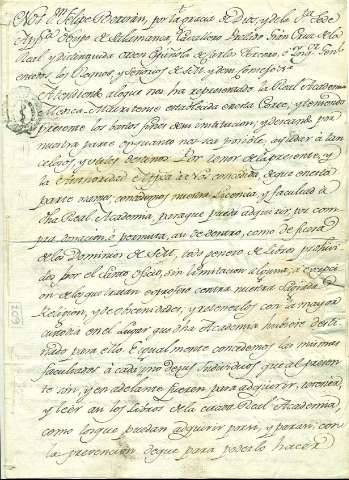 Nos Dn. Felipe Bertrán, por la gracia de Dios, y de la Sta. Sede
Appca. Obispo de Salamanca, Cavallero Prelado Gran Cruz de la
Real y distinguida orden Española de Carlos Tercero, Inqr. Gral.
en todos los Reynos, y Señorios de S.M.
Atendiendo a lo que nos ha representado la Real Academia
Medica Matritense establecida en esta Corte, y teniendo
presente los fines de su institucion, y deseando por
nuestra parte, en quanto nos sea posible, ayudar à tan
utiles Por tenor de la presente, y
la Authoridad Appca. à nos concedida, de que en esta
parte usamos, concedemos nuestra Licencia, y facultad à
dha Real Academia, para que pueda adquirir, por com
pra, donacion, ò permuta, asi de dentro, como de fuera
de los Dominios de S.M. todo genero de Libros prohivi
dos por el Santo oficio, sin limitacion alguna, à excepcion
de los que tratan exprofeso contra nuestra Sagrada
Religion, y de obcenidades, y retenerlos con la mayor
custodia en el Lugar que dha Academia hubiere desti
nado para ello. E igualmente concedemos las mismas
facultades à cada uno de sus Individuos que al presen
te son, y en adelante fueren para adquirir, retener,
y leer asi los Libros de la citada Real Academia,
como los que puedan adquirir para, y para si con
la prevencion de que para poderlo hacer